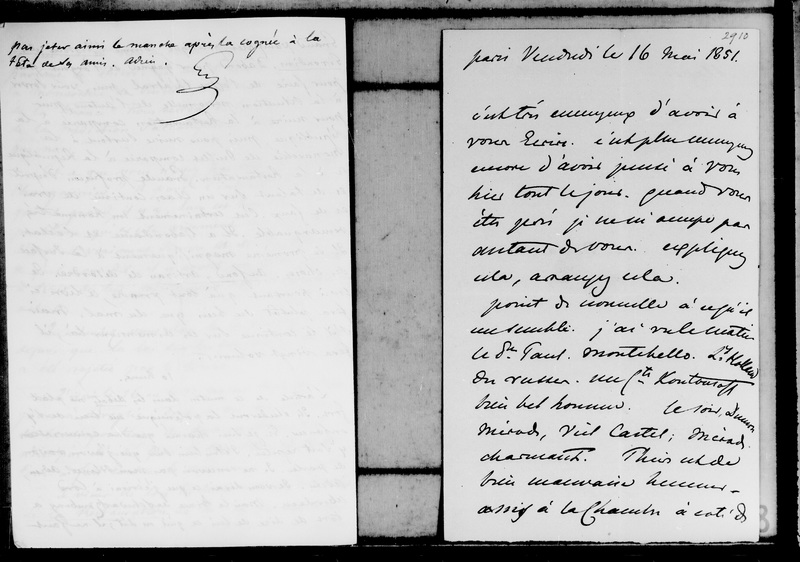 pas jeter ainsi le manche après la cognée à la
tête de ses amis. adieu.
2910
paris Vendredi le 16 mai 1851.
c'est très ennuyeux d'avoir à
vous Ecrire. c'est plus ennuyeux
encore d'avoir pensé à vous
hier tout le jour. quand vous
êtes près je ne m'occupe pas
autant de vous. expliquez
cela, arrangez cela.
point de nouvelle à ce qu'il
me semble. j'ai vu le matin
le d. de Montebello. Ld Holland
des russes. un Cte Koutousoff
bien bel homme. le soir, Dumon
Mérode, Viel Castel; Mérode
charmant. Thiers est de
bien mauvaise humeur
assis à la Chambre à coté de